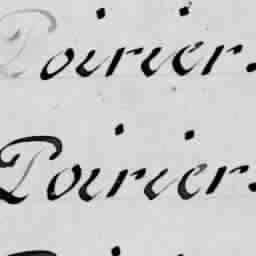 Poirier.
Poirier.